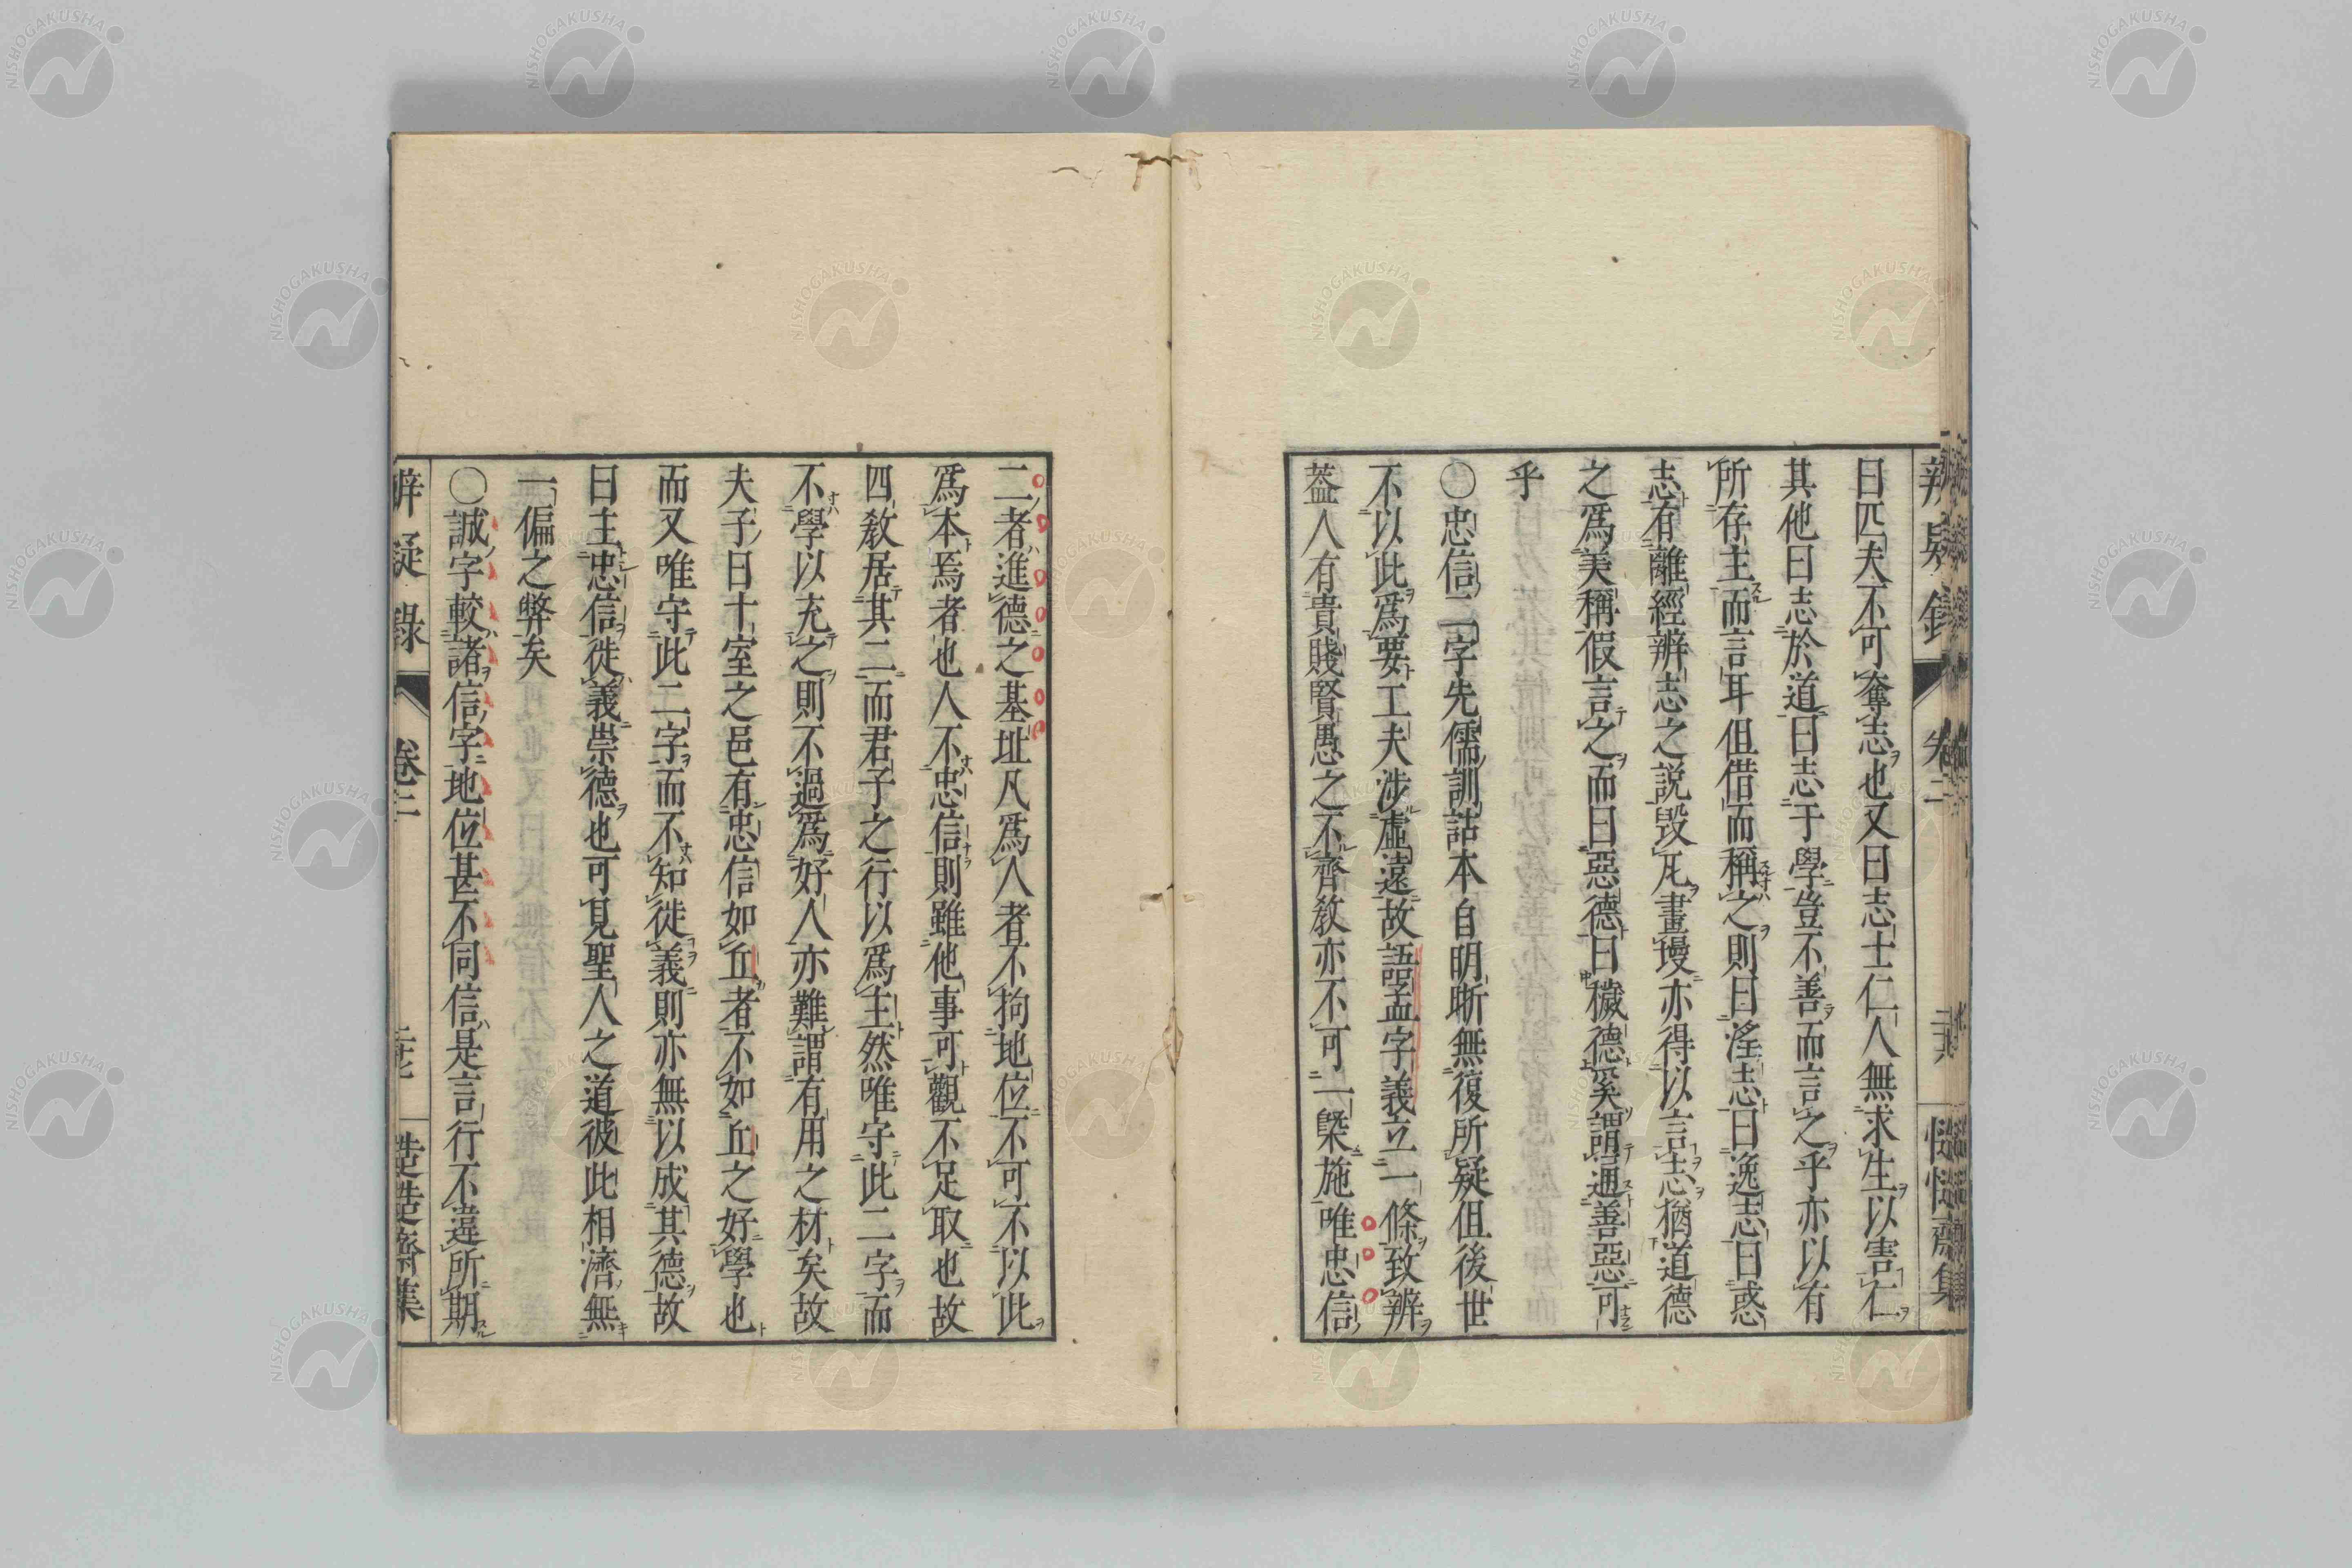 曰匹夫不可奪志也又曰志士仁人無求生以害仁
其他曰志於道曰志于學豈不善而言之乎亦以有
所存主而言耳但借而稱之則曰淫志曰逸志曰惑
志有離經辨志之說毀瓦畫墁亦得以言志猶道德
之爲美稱假言之而曰惡德曰穢德奚謂通善惡可
乎
○忠信二字先儒訓詁本自明晰無復所疑但後世
不以此爲要工夫涉虛遠故語孟字義立一條致辨
葢人有貴賤賢愚之不齊敎亦不可一槩施唯忠信
二者進德之基址凡爲人者不拘地位不可不以此
爲本焉者也人不忠信則雖他事可觀不足取也故
四敎居其二而君子之行以爲主然唯守此二字而
不學以充之則不過爲好人亦難謂有用之材矣故
夫子曰十室之邑有忠信如丘者不如丘之好學也
而又唯守此二字而不知徙義則亦無以成其德故
曰主忠信徙義崇德也可見聖人之道彼此相濟無
一偏之弊矣
○誠字較諸信字地位甚不同信是言行不違所期
辨疑錄 卷三
NISHOGAKUSHA